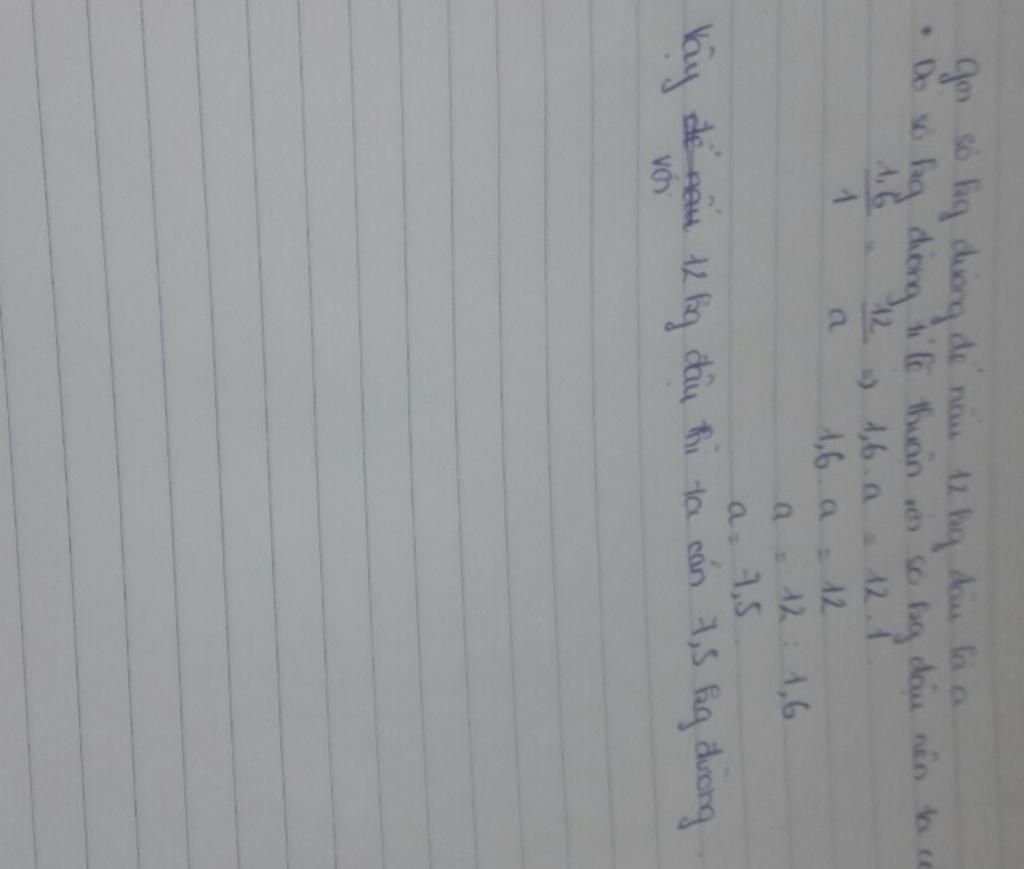 Gọi số kg đường để nấu 12 kg dâu là a
• Do số kg đường tỉ lệ thuận với số kg dâu nên ta có
1,6/1 = 12/a => 1,6 . a = 12 . 1
1,6 . a = 12
a = 12 : 1,6
a = 7,5
Vậy để nấu 12 kg dâu thì ta cần 7,5 kg đường.
với